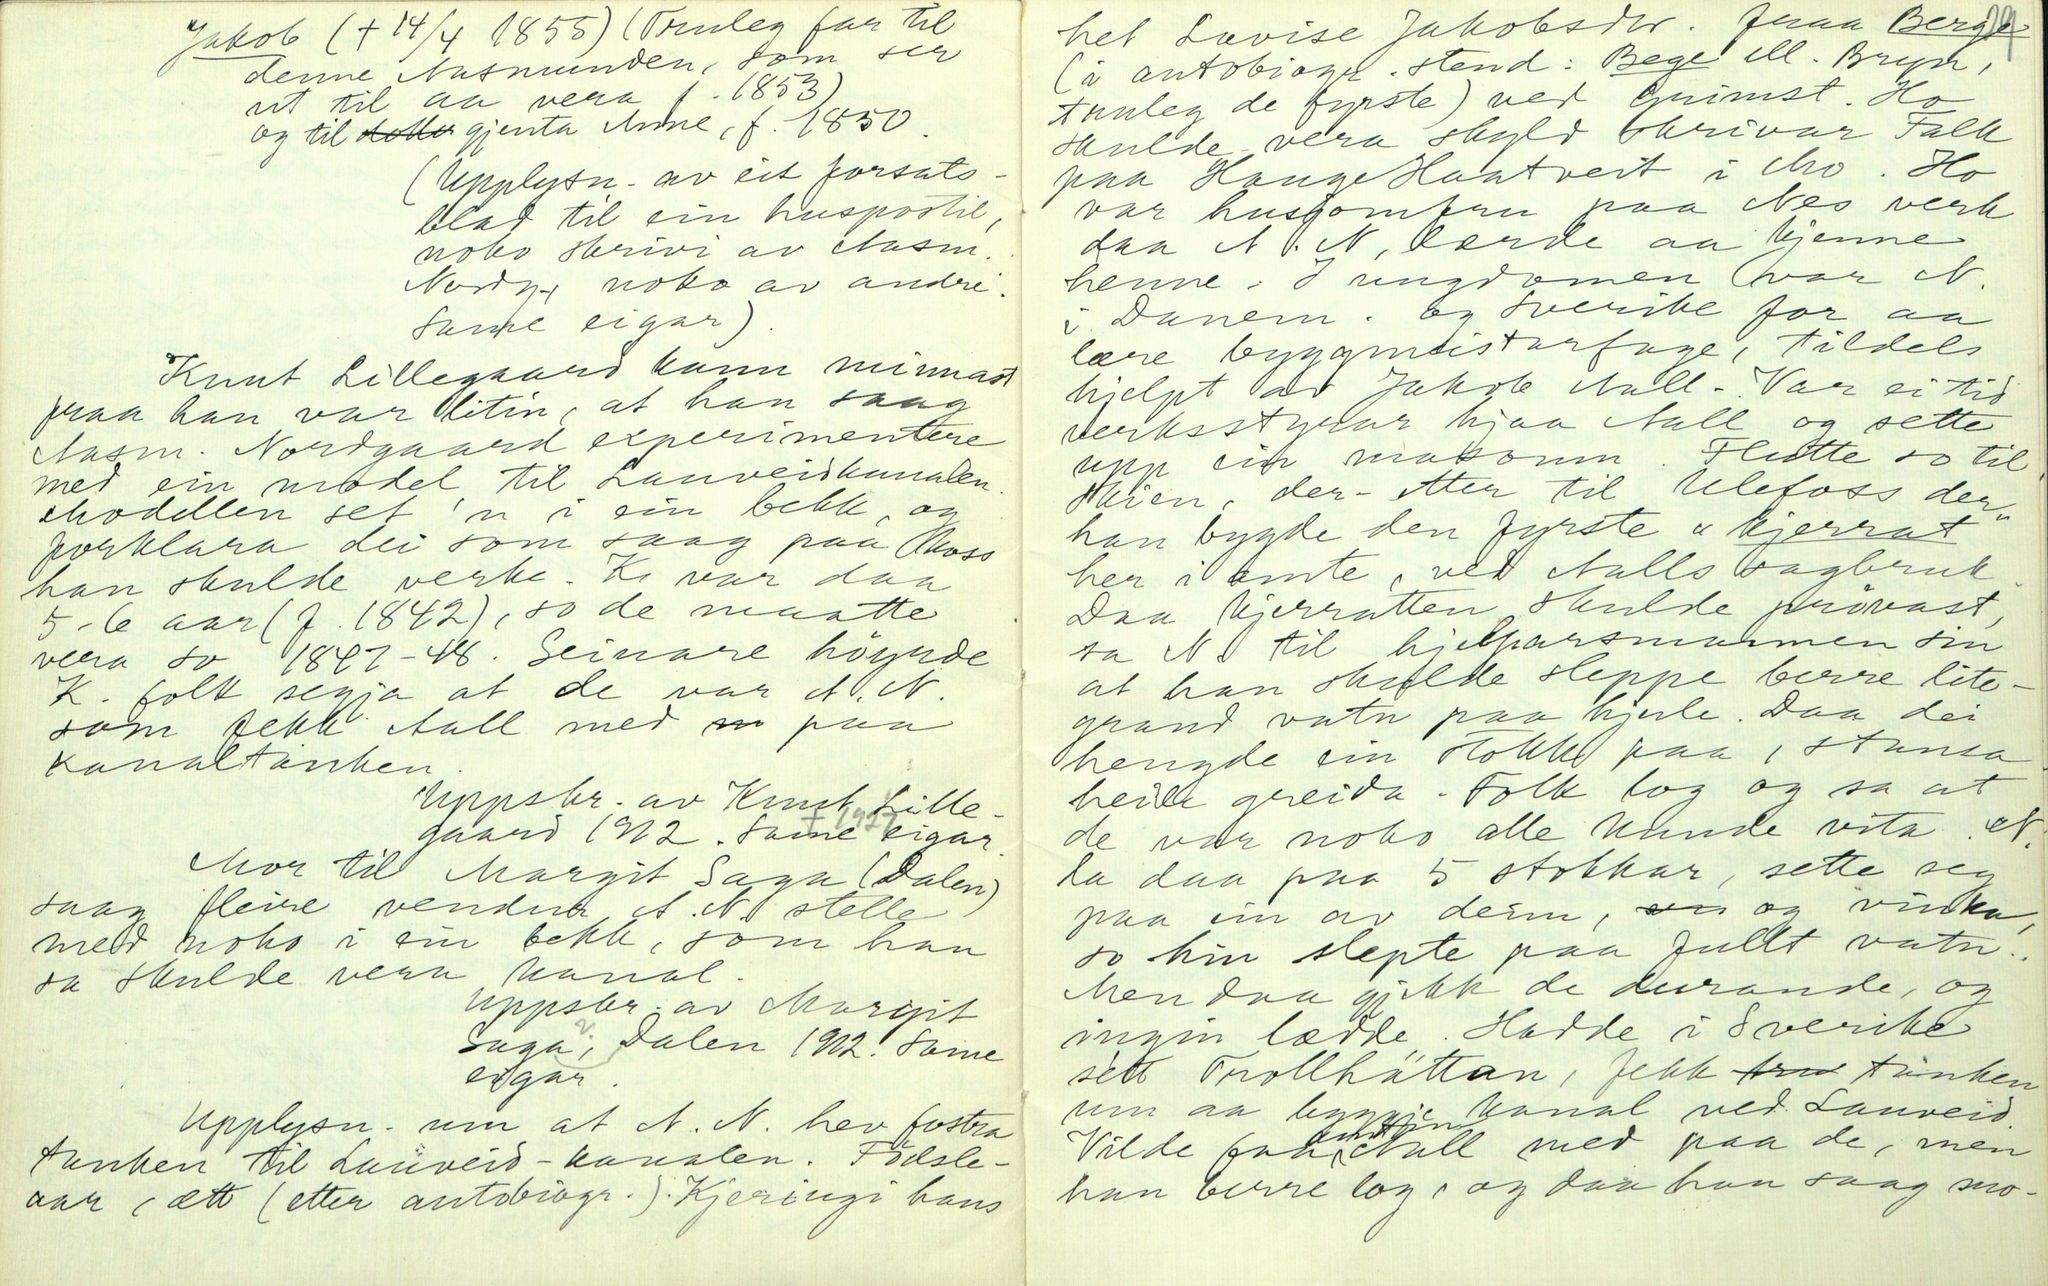 Jakob (+ 14/4 1855) (Truleg far til
denne Aasmunden, som ser
ut til aa vera f. 1853)
og til gjenta Anne, f. 1850.
(Upplysn. av eit forsats-
blad til ein huspostil,
noko skrivi av Aasm.
Nordg., noko av andre.
Same eigar).
Knut Lillegaard kann minnast
fraa han var litin, at han saag
Aasm. Nordgaard experimentere
med ein model til Lauveidkanalen.
Modellen set 'n i ein bekk, og
forklara dei som saag paa koss
han skulde verke. K. var daa
5-6 aar (f. 1842), so de maatte
vera so 1847-48. Seinare höyrde
K. folk segja at de var A. N.
som fekk Aall med paa
kanaltanken.
Uppskr. av Knut Lille-
gaard 1912. Same eigar.
+ 1927
Mor til Margit Saga (Dalen)
saag fleire vendur A. N. stelle
med noko i ein bekk, som han
sa skulde vera kanal.
Uppskr. av Margit
Saga, Dalen 1912. Same
eigar.
Upplysn. um at A. N. hev fostra
tanken til Lauveid-kanalen. Födsle-
aar, ætt (etter autobiogr.). Kjeringi hans
29
het Lovise Jakobsdtr. fraa Berge
(i autobiogr. stend: Bege ell. Bryn,
truleg de fyrste) ved Grimst. Ho
skulde vera skyld skrivar Falk
paa Hauge Haatveit i Mo. Ho
var husjomfru paa Nes verk
daa A. N. lærde aa kjenne
henne. I ungdomen var N.
i Danem. og Sverike for aa
lære byggmeistarfage, tildels
hjelpt av Jakob Aall. Var ei tid
verksstyrar hjaa Aall og sette
upp ein masomn. Flutte so til
Skien, der-etter til Ulefoss der
han bygde den fyrste "kjerrat"
her i amte, ved Aalls sagbruk.
Daa kjerratten skulde prövast,
sa N. til hjelparsmannen sin
at han skulde sleppe berre lite-
grand vatn paa hjule. Daa dei
hengde ein stokk paa, stansa
heile greida. Folk log og sa at
de var noko alle kunde vita. N.
la daa paa 5 stokkar, sette seg
paa ein av deim, og vinka,
so hin slepte paa fullt vatn.
Men daa gjekk de durande, og
ingin lædde. Hadde i Sverike
sett Trollhättan, fekk tanken
um aa byggje kanal ved Lauveid.
Vilde faa Aall med paa de, men
han berre log, og daa han saag mo-